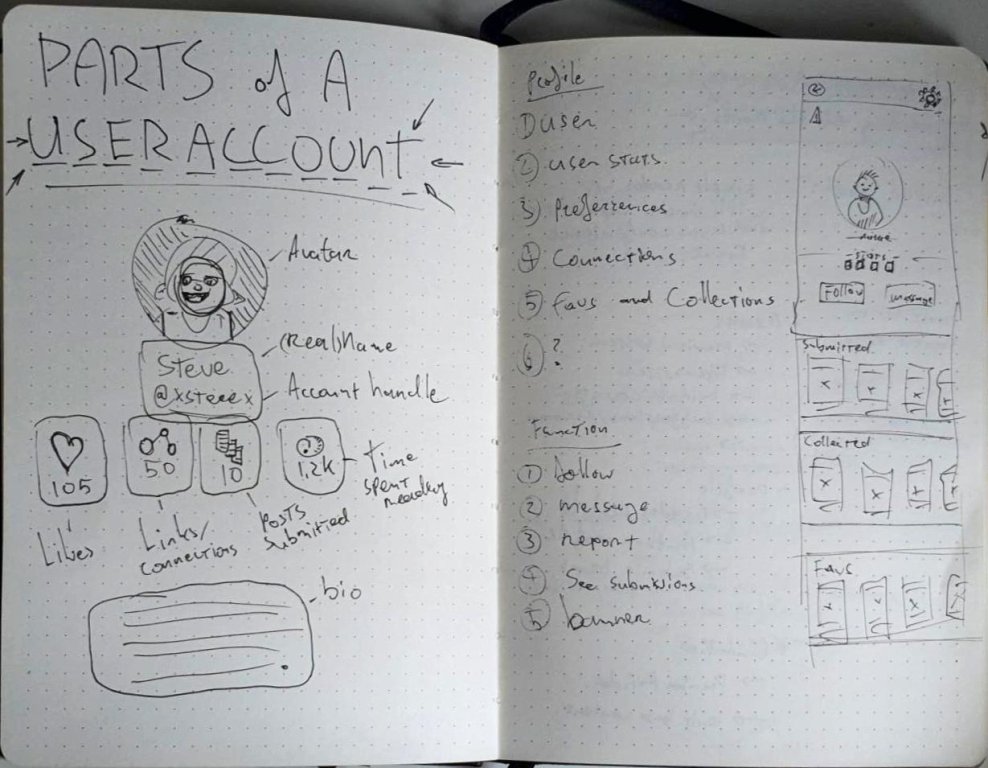 PARTS of A
USER ACCOUNT
Avatar
(Real)Name
Steve
@xsteeex
Account handle
105
50
10
1,2K
Time
spent
reading
Likes
Links/
connections
Posts
submitted
bio
Profile
1) User
2) user stats
3) Preferrences
4) Connections
5) Favs and Collections
6) ?
Function
1 follow
2 message
3 report
4 See submissions
5 banner
stats
Follow
message
Submitted
Collected
Favs